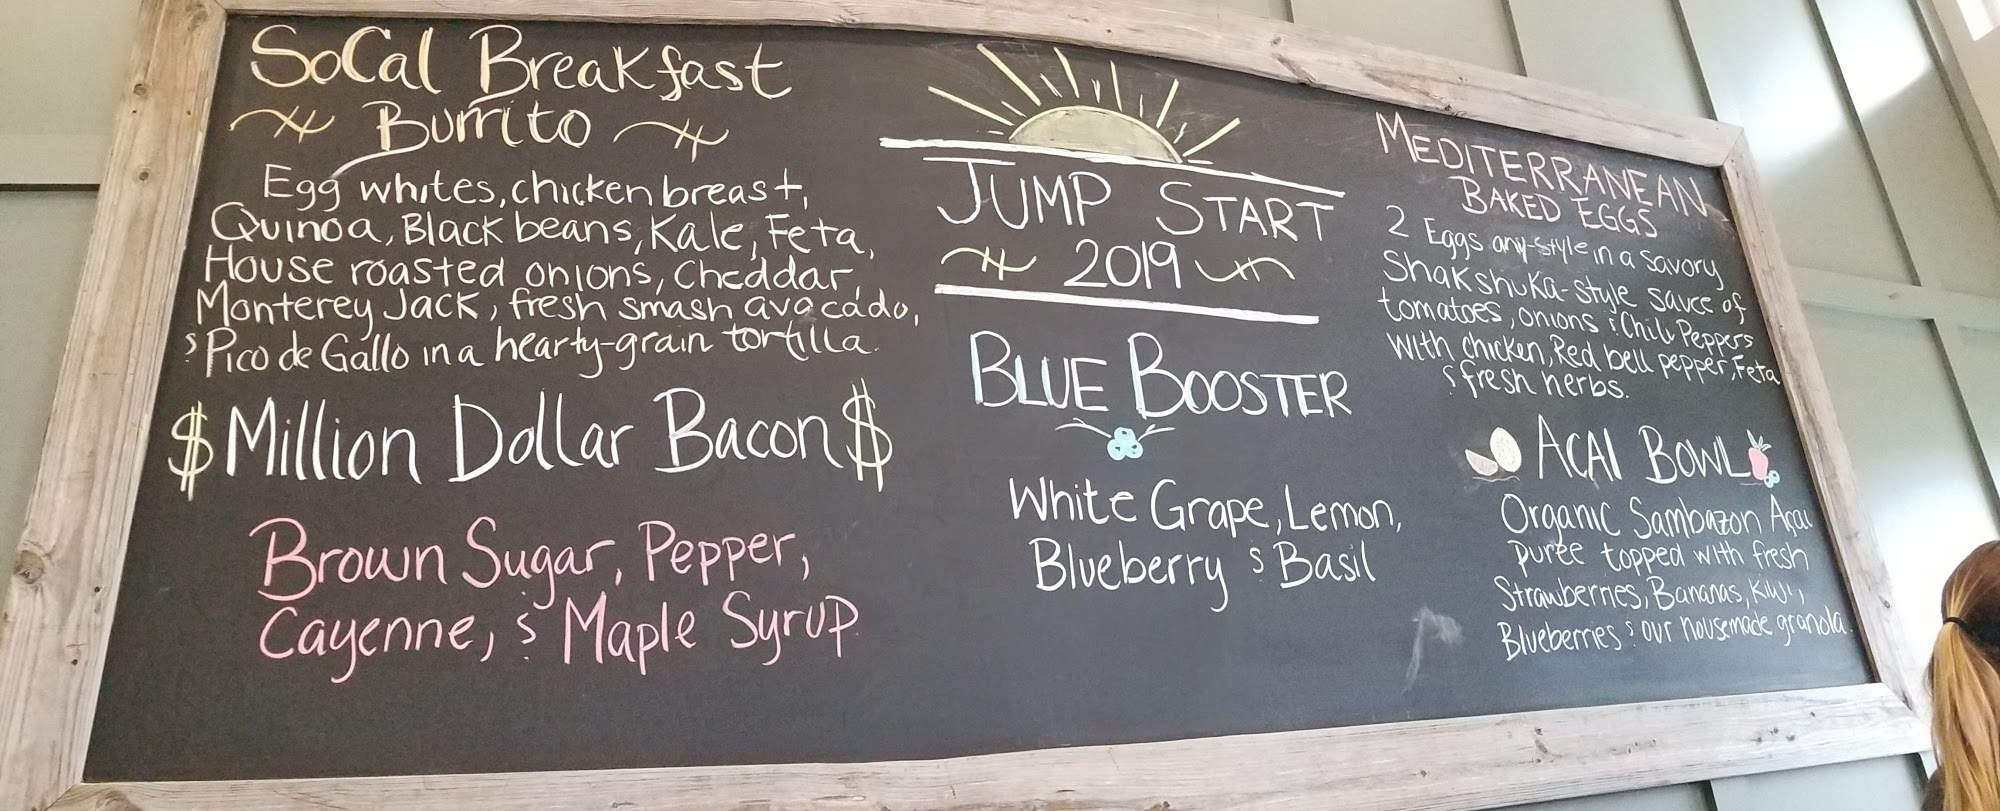 SoCal Breakfast
Burrito
Egg whites, chicken breast,
Quinoa, Black beans, Kale, Feta,
House roasted onions, Cheddar,
Monterey Jack, fresh smash avocado,
& Pico de Gallo in a hearty-grain tortilla.
$ Million Dollar Bacon $
Brown Sugar, Pepper,
Cayenne, & Maple Syrup
JUMP START
2019
BLUE BOOSTER
White Grape, Lemon,
Blueberry & Basil
MEDITERRANEAN
BAKED EGGS
2 Eggs any-style in a savory
Shakshuka-style sauce of
tomatoes, onions & Chili Peppers
with chicken, Red bell pepper, Feta
& fresh herbs.
ACAI BOWL
Organic Sambazon Açai
purée topped with fresh
Strawberries, Bananas, Kiwi,
Blueberries & our housemade granola.